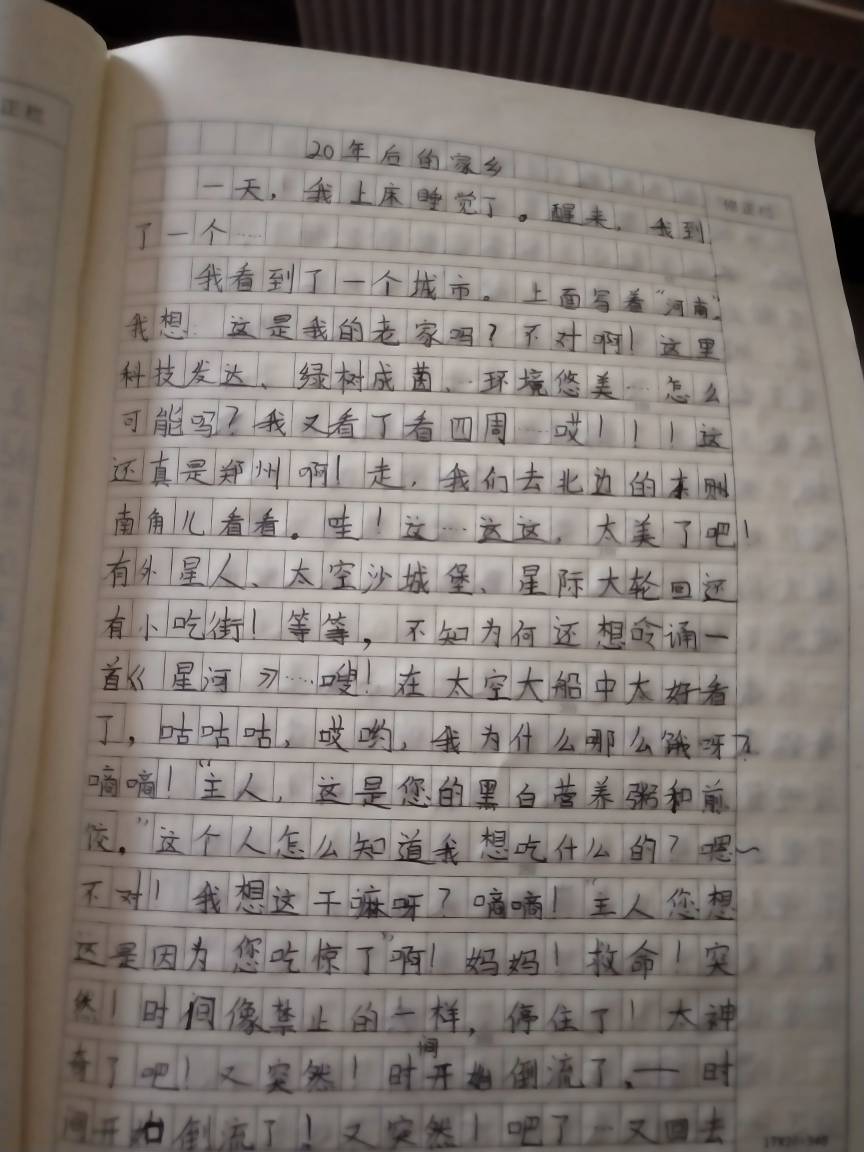 20年后的家乡
一天，我上床睡觉了。醒来，我到
了一个……
我看到了一个城市。上面写着“河南”。
我想：这是我的老家吗？不对啊！这里
科技发达、绿树成茵、环境悠美……怎么
可能吗？我又看了看四周……哎！！！这
还真是郑州啊！走，我们去北边的
南角儿看看。哇！这……这这，太美了吧！
有外星人、太空沙城堡、星际大轮回还
有小吃街！等等，不知为何还想吟诵一
首《星河》……嗖！在太空大船中太好看
了，咕咕咕，哎哟，我为什么那么饿呀？
嘀嘀！“主人，这是您的黑白营养粥和煎
饺。”这个人怎么知道我想吃什么的？嗯～
不对！我想这干嘛呀？嘀嘀！“主人您想
这是因为您吃惊了”啊！妈妈！救命！突
然！时间像禁止的一样，停住了！太神
奇了吧！又突然！时间开始倒流了、——时
间开始倒流了！又突然！吧了一又回去